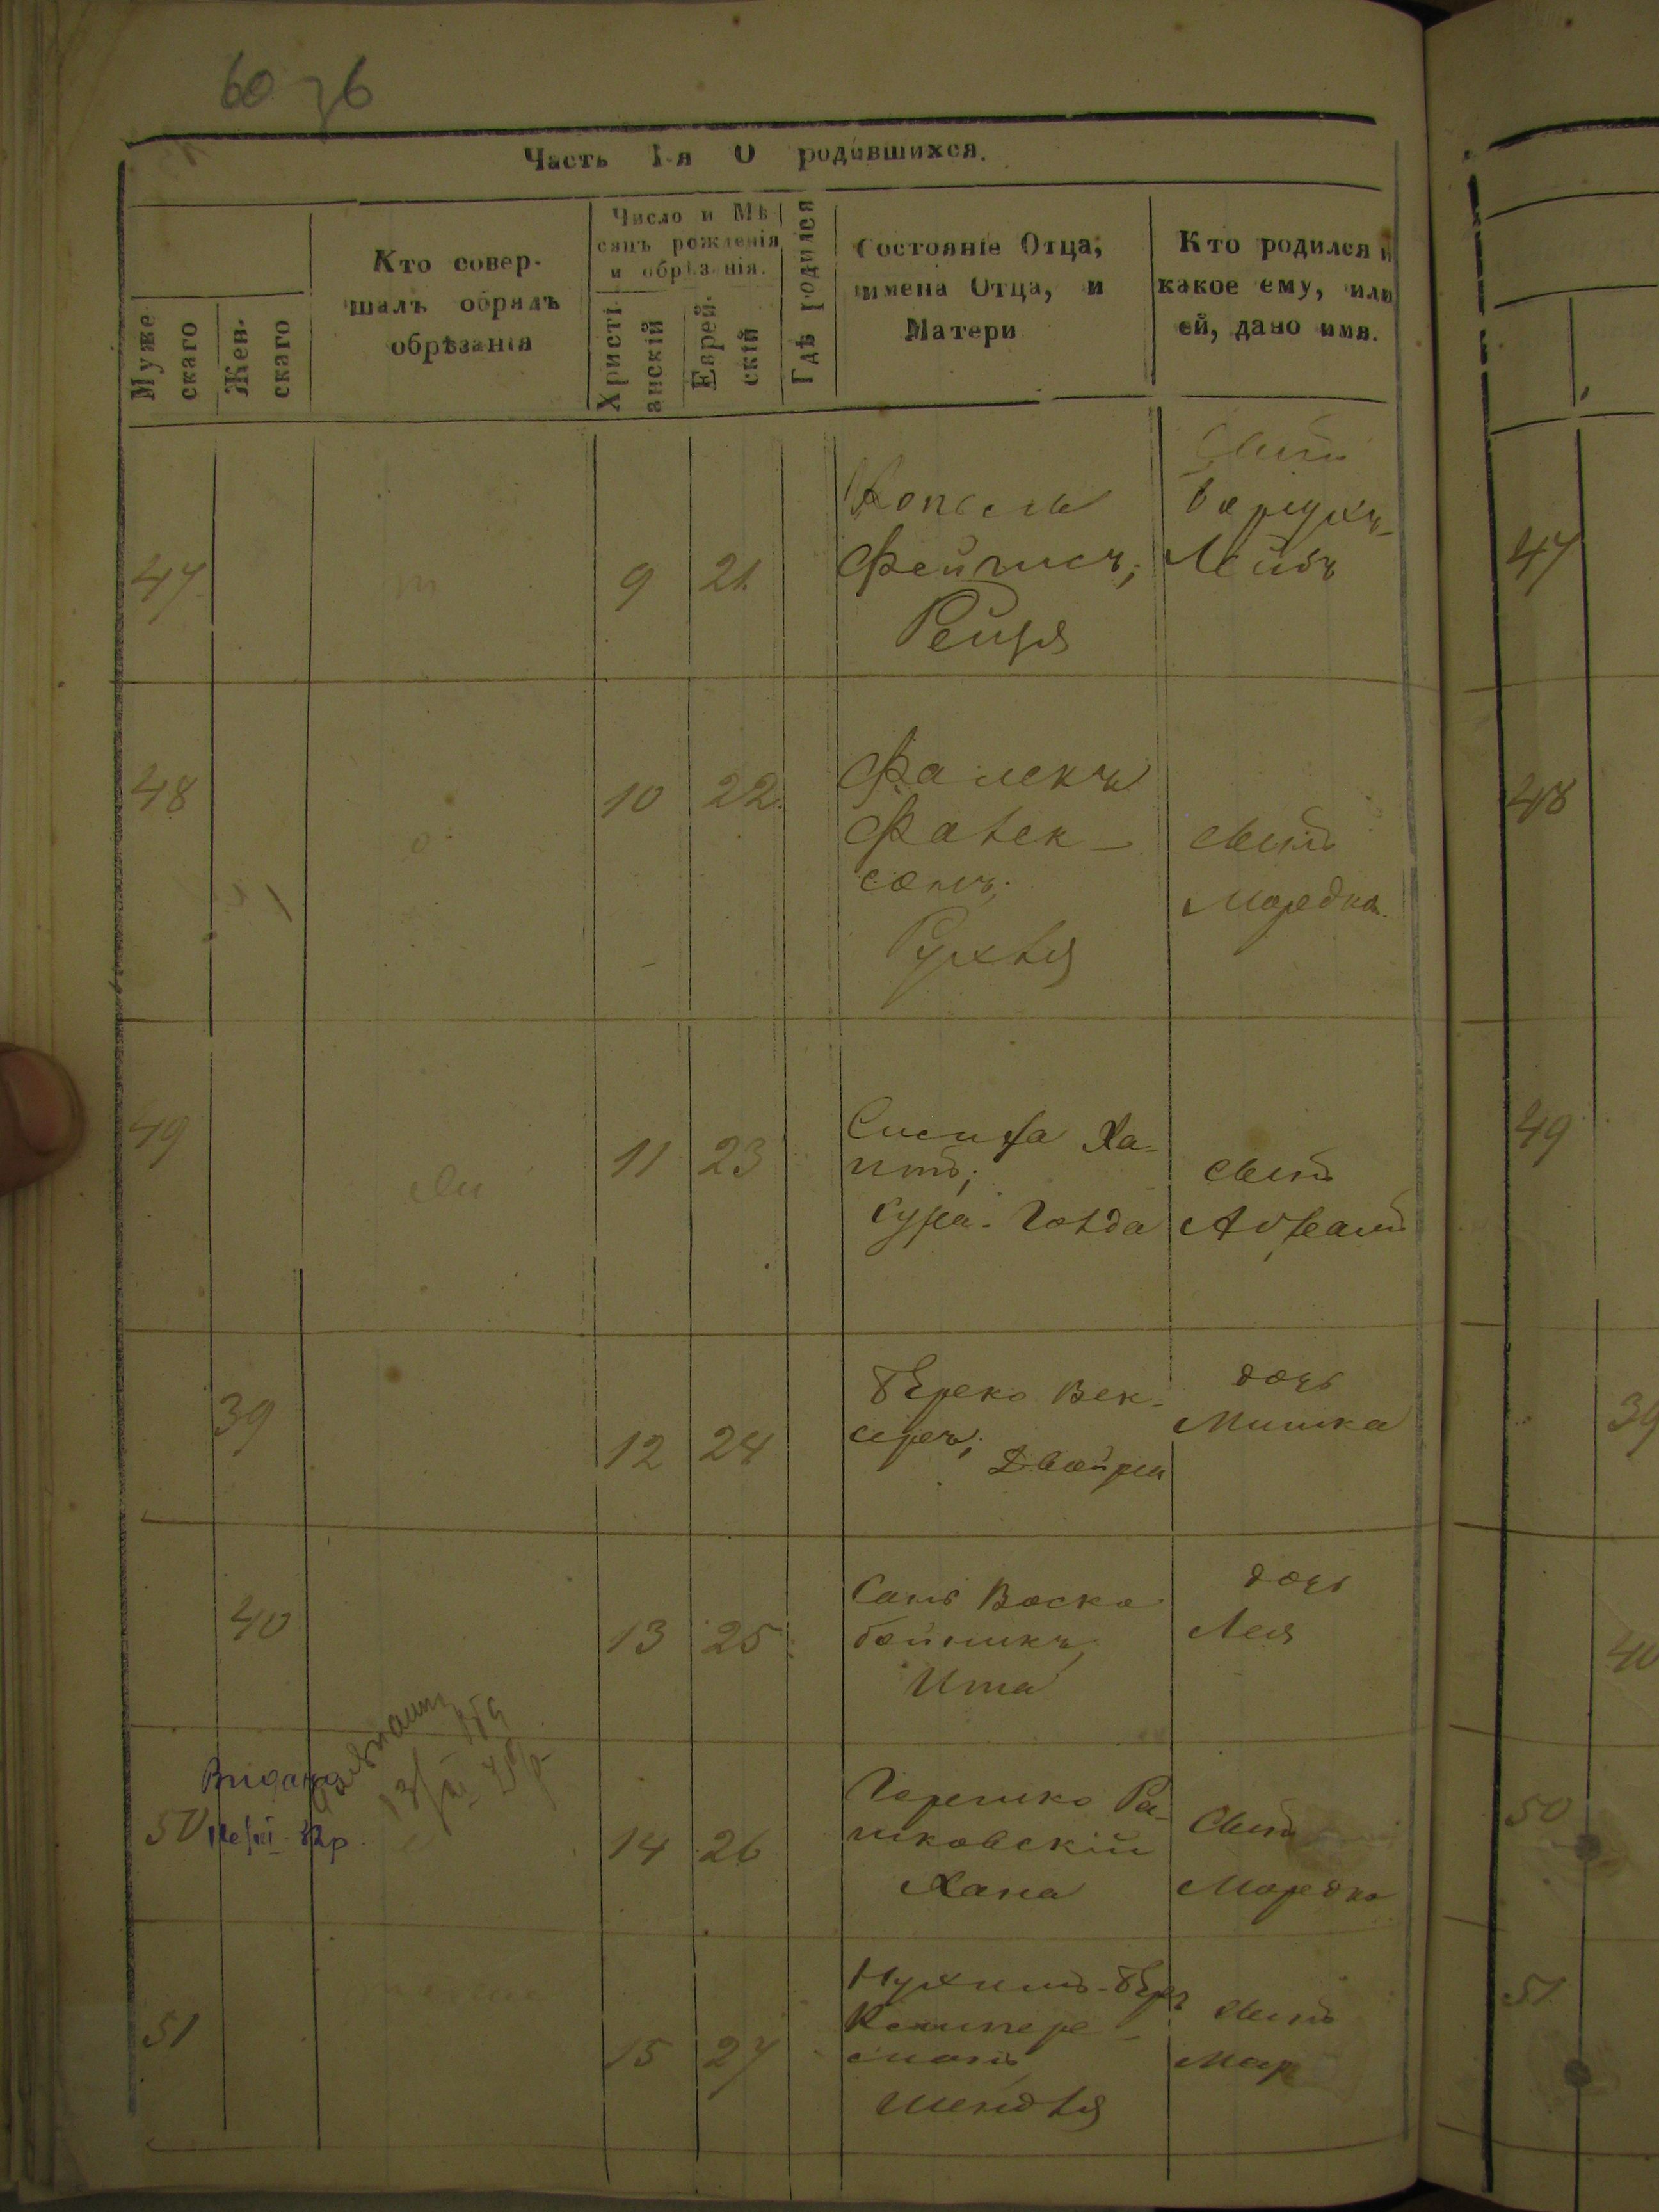 60 76
Часть I-я О родившихся.
Муже
скаго
Жен-
скаго
Кто совер-
шалъ обрядъ
обрѣзанія
Число и Мѣ
сяцъ рожденія
и обрѣзанія.
Христі
анскій
Еврей-
скій
Гдѣ родился
Состояніе Отца,
имена Отца, и
Матери
Кто родился и
какое ему, или
ей, дано имя.
47
9
21.
Копель
Рейзя
Сынъ
Борухъ-
Лейбъ
47
48
10
22.
Фалекъ
Фалек-
сонъ;
Рухля
сынъ
Мордко.
48
49
11
23
Ха-
имъ;
Сура-Голда
сынъ
Авраамъ
49
39
12
24
Берко Век-
слеръ;
Двойра
дочь
Минка
39
40
13
25
Воско
бойникъ
Ита
дочь
Лея
40
50
14
26
Гершко Ра-
шковскій
Хана
Сынъ
Мордко
50
51
15
27
Нухимъ-Беръ
манъ
Шендля
сынъ
51